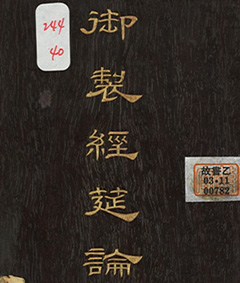 244
40
御製經筵論
故書乙
03·11
00782